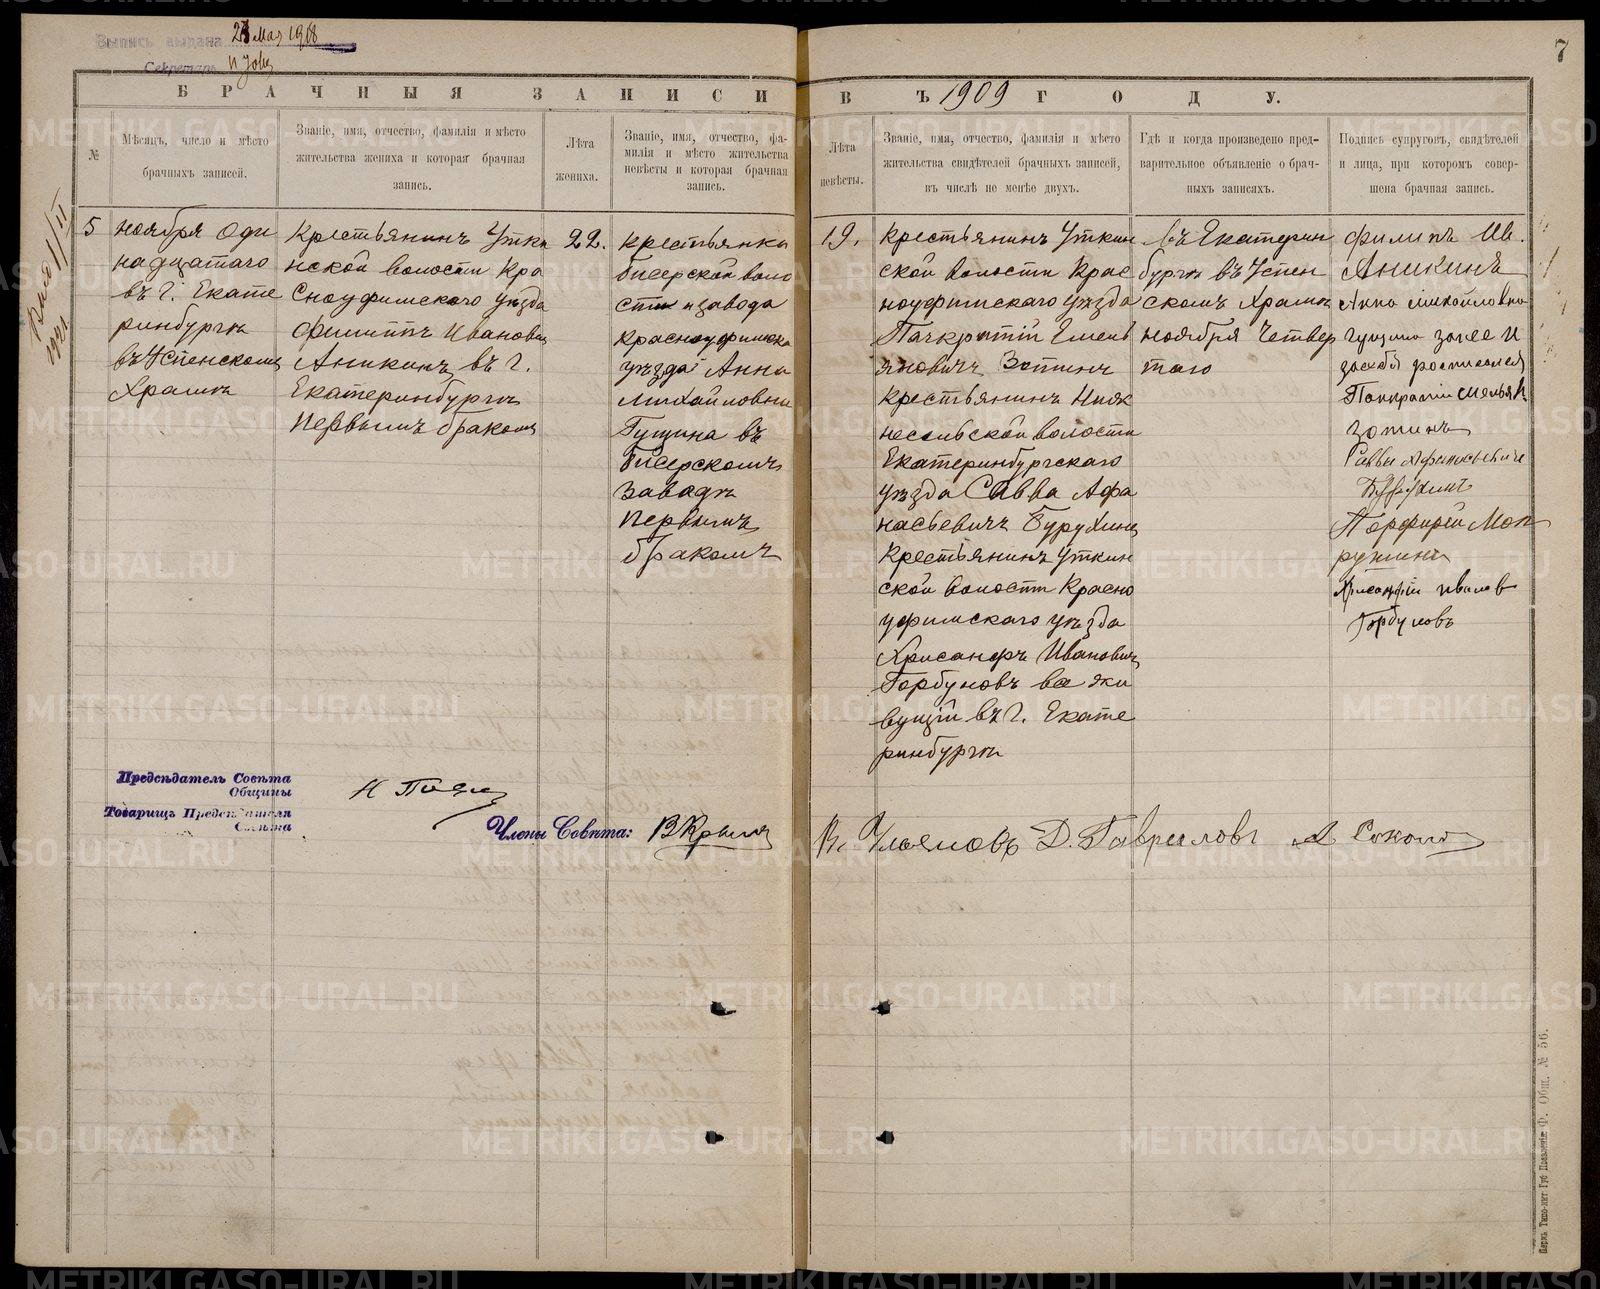 Выпись выдана 23 Мая 1918
Секретарь
7
БРАЧНЫЯ ЗАПИСИ
ВЪ 1909 ГОДУ.
№
Мѣсяцъ, число и мѣсто
брачныхъ записей.
Званіе, имя, отчество, фамилія и мѣсто
жительства жениха и которая брачная
запись.
Лѣта
жениха.
Званіе, имя, отчество, фа-
милія и мѣсто жительства
невѣсты и которая брачная
запись.
Лѣта
невѣсты.
Званіе, имя, отчество, фамилія и мѣсто
жительства свидѣтелей брачныхъ записей,
въ числѣ не менѣе двухъ.
Гдѣ и когда произведено пред-
варительное объявленіе о брач-
ныхъ записяхъ.
Подпись супруговъ, свидѣтелей
и лица, при которомъ совер-
шена брачная запись.
5
ноября оди
надцатаго
въ г. Екате
ринбургѣ
въ Успенскомъ
Храмѣ
Крестьянинъ Утки
нской волости Кра
сноуфимского уѣзда
Филиппъ Ивановичъ
Аникинъ въ г.
Екатеринбургѣ
Первымъ бракомъ
22.
крестьянка
Бисерской воло
сти и завода
Красноуфимска
уѣзда Анна
Михайловна
Гущина въ
Бисерскомъ
Заводѣ
Первымъ
бракомъ
19.
Крестьянинъ Уткин
ской волости Крас
ноуфимскаго уѣзда
Панкратій Емель
яновичъ Зотинъ
Крестьянинъ Нияк
несельской волости
Екатеринбургскаго
уѣзда Савва Афа
насьевичъ Бурухинъ
Крестьянинъ Уткин
ской волости Красно
уфимскаго уѣзда
Хрисанфъ Ивановичъ
Горбуновъ все жи
вущій въ г. Екате
ринбургѣ
въ Екатерин
бургѣ въ Успен
скомъ Храмѣ
ноября Четвер
таго
Филипъ Ив.
Аникинъ
Анна Михайловна
Гущина
Панкратій
Зотинъ
Саввы
Порфирій
Ивановъ
Горбуновъ
Предсѣдатель Совѣта
Общины
Товарищъ Предсѣдателя
Совѣта
Члены Совѣта:
В. Ульяновъ Д. Гавриловъ
METRIKI.GASO-URAL.RU